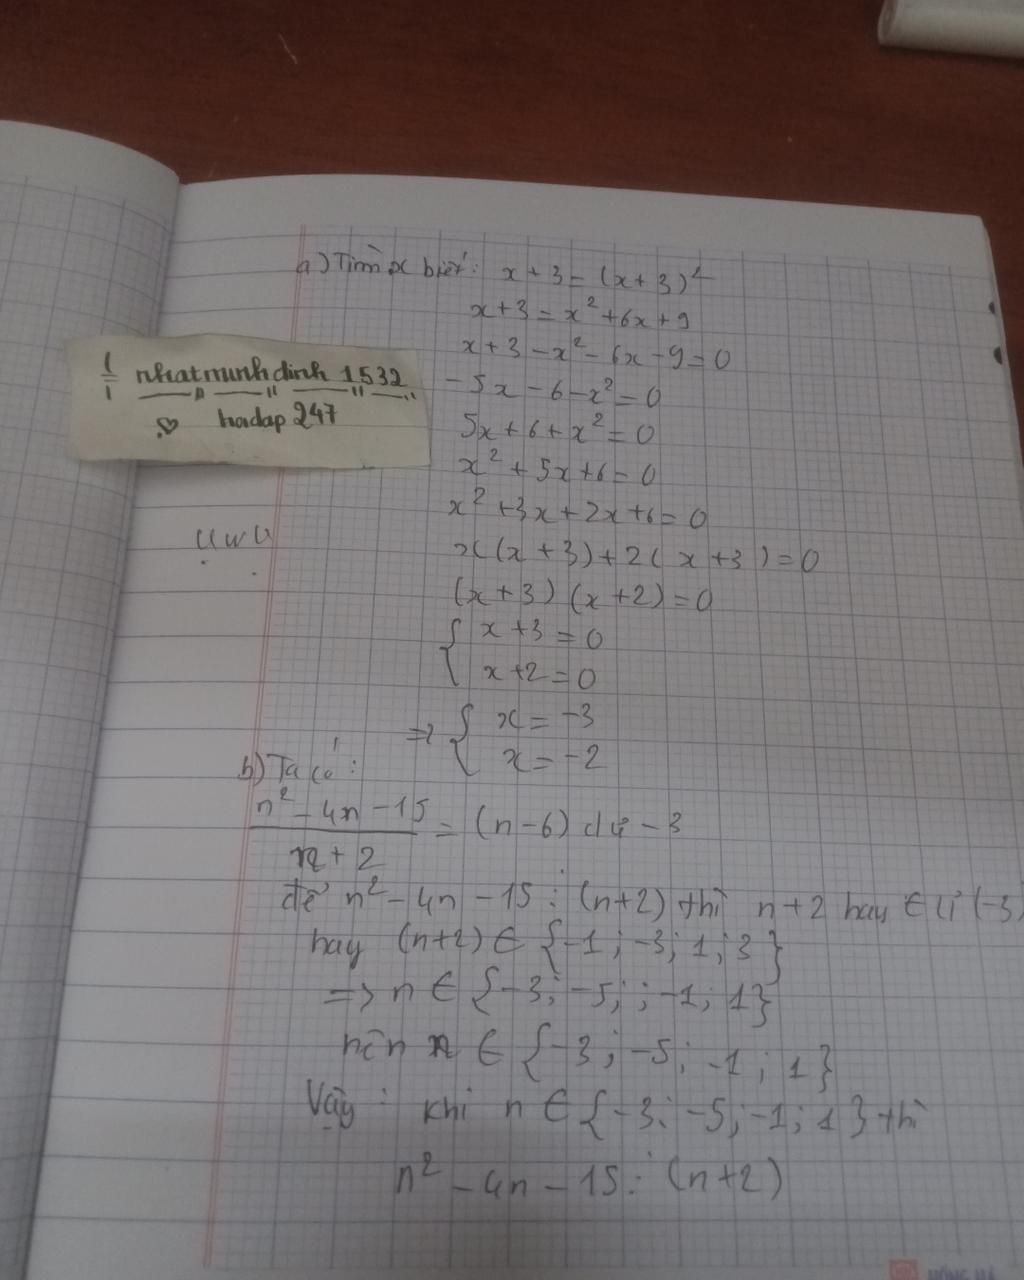 a) Tìm x biết: x + 3 = (x + 3)²
x + 3 = x² + 6x + 9
x + 3 - x² - 6x - 9 = 0
- 5x - 6 - x² = 0
5x + 6 + x² = 0
x² + 5x + 6 = 0
x² + 3x + 2x + 6 = 0
x(x + 3) + 2(x + 3) = 0
(x + 3)(x + 2) = 0
{ x + 3 = 0
x + 2 = 0
=> { x = -3
x = -2
nhatminhdinh 1532
hoidap 247
UwU
b) Ta có:
n² - 4n - 15 / n + 2 = (n - 6) dư - 3
để n² - 4n - 15 ⋮ (n+2) thì n + 2 hay ∈ Ư (-3)
hay (n+2) ∈ {-1; -3; 1; 3}
=> n ∈ {-3; -5; ; -1; 1}
nên n ∈ {-3; -5; -1; 1}
Vậy: khi n ∈ {-3; -5; -1; 1} thì
n² - 4n - 15 ⋮ (n+2)